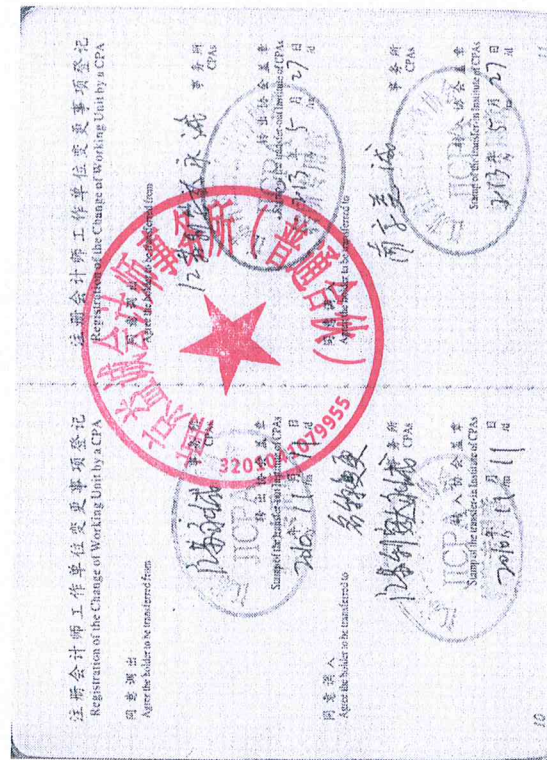 注册会计师工作单位变更事项登记
Registration of the Change of Working Unit by a CPA
同意调出
Agree the holder to be transferred from
事务所
CPAs
转出协会盖章
Stamp of the transfer-out Institute of CPAs
2010年11月11日
同意调入
Agree the holder to be transferred to
名称变更
事务所
CPAs
转入协会盖章
Stamp of the transfer-in Institute of CPAs
2010年11月11日
JICPA
10
注册会计师工作单位变更事项登记
Registration of the Change of Working Unit by a CPA
同意调出
Agree the holder to be transferred from
事务所
CPAs
转出协会盖章
Stamp of the transfer-out Institute of CPAs
2013年5月27日
同意调入
Agree the holder to be transferred to
南京益诚
事务所
CPAs
转入协会盖章
Stamp of the transfer-in Institute of CPAs
2013年5月27日
JICPA
11
南京益诚会计师事务所（普通合伙）
3201041079955